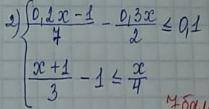 2) { (0,2x-1)/7 - 0,3x/2 ≤ 0,1
(x+1)/3 - 1 ≤ x/4
7 ба